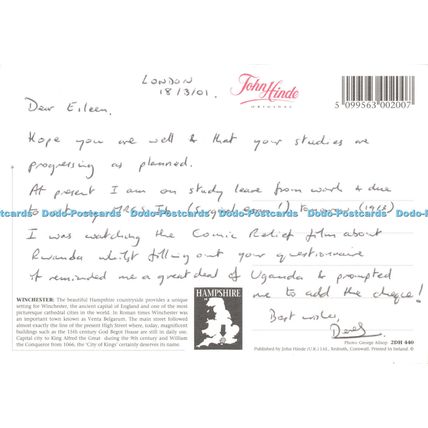 LONDON
18/3/01.
John Hinde
ORIGINAL
5 099563 002007
Dear Eileen,
Hope you are well & that your studies are
progressing as planned.
At present I am on study leave from work & due
to (Surgical exam!) tomorrow
Dodo-Postcards Dodo-Postcards Dodo-Postcards Dodo-Postcards
I was watching the Comic Relief film about
Rwanda whilst filling out your questionnaire
it reminded me a great deal of Uganda & prompted
me to add the cheque!
Best wishes,
Derek
WINCHESTER: The beautiful Hampshire countryside provides a unique
setting for Winchester, the ancient capital of England and one of the most
picturesque cathedral cities in the world. In Roman times Winchester
was an important town known as Venta Belgarum. The main street followed
almost exactly the line of the present High Street where, today, magnificent
buildings such as the 15th century God Begot House are still in daily use.
Capital city to King Alfred the Great during the 9th century and William
the Conqueror from 1066, the 'City of Kings' certainly deserves its name.
HAMPSHIRE
Photo: George Allsop 2DH 440
Published by John Hinde (U.K.) Ltd., Redruth, Cornwall. Printed in Ireland. ©